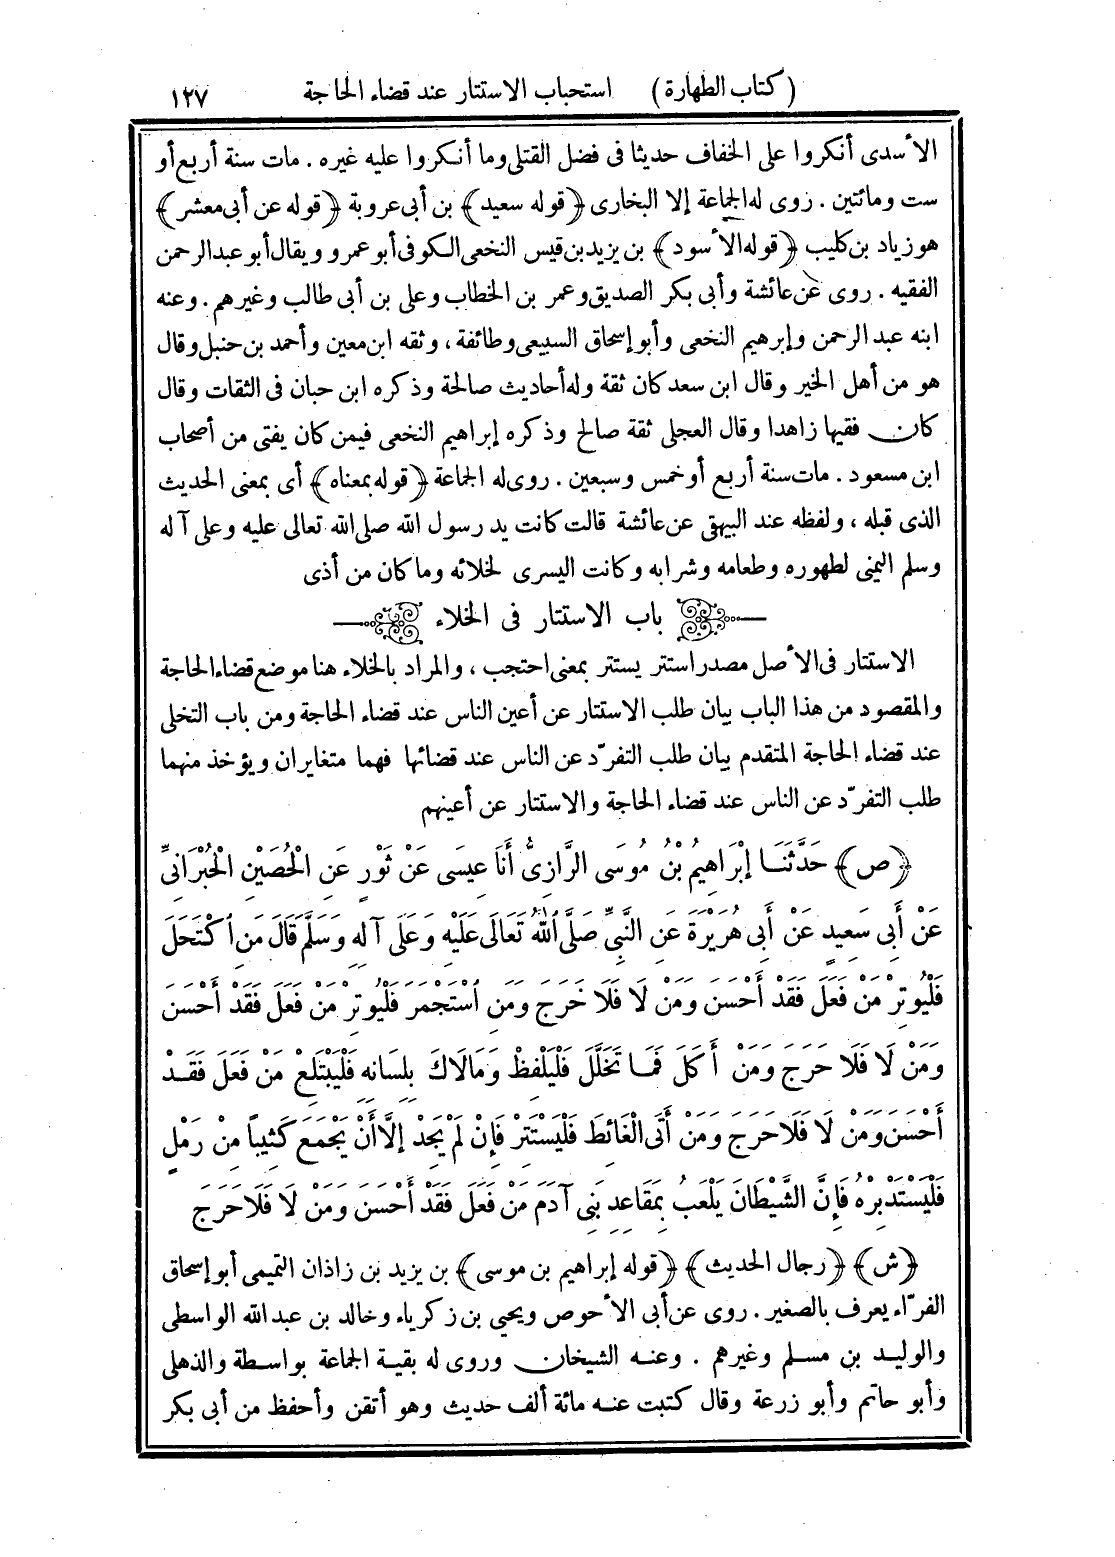 (كتاب الطهارة) استحباب الاستتار عند قضاء الحاجة ١٢٧
الأسدى أنكروا على الخفاف حديثا فى فضل القتلى وما أنكروا عليه غيره . مات سنة أربع أو
ست ومائتين . روى له الجماعة إلا البخارى ﴿قوله سعيد﴾ بن أبى عروبة ﴿قوله عن أبى معشر﴾
هو زياد بن كليب ﴿قوله الأسود﴾ بن يزيد بن قيس النخعى الكوفى أبو عمرو ويقال أبو عبد الرحمن
الفقيه . روى عن عائشة وأبى بكر الصديق وعمر بن الخطاب وعلى بن أبى طالب وغيرهم . وعنه
ابنه عبد الرحمن وإبرهيم النخعى وأبو إسحاق السبيعى وطائفة ، وثقه ابن معين وأحمد بن حنبل وقال
هو من أهل الخير وقال ابن سعد كان ثقة وله أحاديث صالحة وذكره ابن حبان فى الثقات وقال
كان فقيها زاهدا وقال العجلى ثقة صالح وذكره إبراهيم النخعى فيمن كان يفتى من أصحاب
ابن مسعود . مات سنة أربع أو خمس وسبعين . روى له الجماعة ﴿قوله بمعناه﴾ أى بمعنى الحديث
الذى قبله ، ولفظه عند البيهقى عن عائشة قالت كانت يد رسول الله صلى الله تعالى عليه وعلى آله
وسلم اليمنى لطهوره وطعامه وشرابه وكانت اليسرى لخلائه وما كان من أذى
باب الاستتار فى الخلاء
الاستتار فى الأصل مصدر استتر يستتر بمعنى احتجب ، والمراد بالخلاء هنا موضع قضاء الحاجة
والمقصود من هذا الباب بيان طلب الاستتار عن أعين الناس عند قضاء الحاجة ومن باب التخلى
عند قضاء الحاجة المتقدم بيان طلب التفرّد عن الناس عند قضائها فهما متغايران ويؤخذ منهما
طلب التفرّد عن الناس عند قضاء الحاجة والاستتار عن أعينهم
﴿ص﴾ حَدَّثَنَا إِبْرَاهِيمُ بْنُ مُوسَى الرَّازِىُّ أَنَا عِيسَى عَنْ ثَوْرٍ عَنِ الْحُصَيْنِ الْحُبْرَانِىِّ
عَنْ أَبِى سَعِيدٍ عَنْ أَبِى هُرَيْرَةَ عَنِ النَّبِىِّ صَلَّى اللهُ تَعَالَى عَلَيْهِ وَعَلَى آلِهِ وَسَلَّمَ قَالَ مَنِ اكْتَحَلَ
فَلْيُوتِرْ مَنْ فَعَلَ فَقَدْ أَحْسَنَ وَمَنْ لَا فَلَا حَرَجَ وَمَنِ اسْتَجْمَرَ فَلْيُوتِرْ مَنْ فَعَلَ فَقَدْ أَحْسَنَ
وَمَنْ لَا فَلَا حَرَجَ وَمَنْ أَكَلَ فَمَا تَخَلَّلَ فَلْيَلْفِظْ وَمَا لَاكَ بِلِسَانِهِ فَلْيَبْتَلِعْ مَنْ فَعَلَ فَقَدْ
أَحْسَنَ وَمَنْ لَا فَلَا حَرَجَ وَمَنْ أَتَى الْغَائِطَ فَلْيَسْتَتِرْ فَإِنْ لَمْ يَجِدْ إِلَّا أَنْ يَجْمَعَ كَثِيبًا مِنْ رَمْلٍ
فَلْيَسْتَدْبِرْهُ فَإِنَّ الشَّيْطَانَ يَلْعَبُ بِمَقَاعِدِ بَنِى آدَمَ مَنْ فَعَلَ فَقَدْ أَحْسَنَ وَمَنْ لَا فَلَا حَرَجَ
﴿ش﴾ ﴿رجال الحديث﴾ ﴿قوله إبراهيم بن موسى﴾ بن يزيد بن زاذان التميمى أبو إسحاق
الفرّاء يعرف بالصغير . روى عن أبى الأحوص ويحيى بن زكرياء وخالد بن عبد الله الواسطى
والوليد بن مسلم وغيرهم . وعنه الشيخان وروى له بقية الجماعة بواسطة والذهلى
وأبو حاتم وأبو زرعة وقال كتبت عنه مائة ألف حديث وهو أتقن وأحفظ من أبى بكر